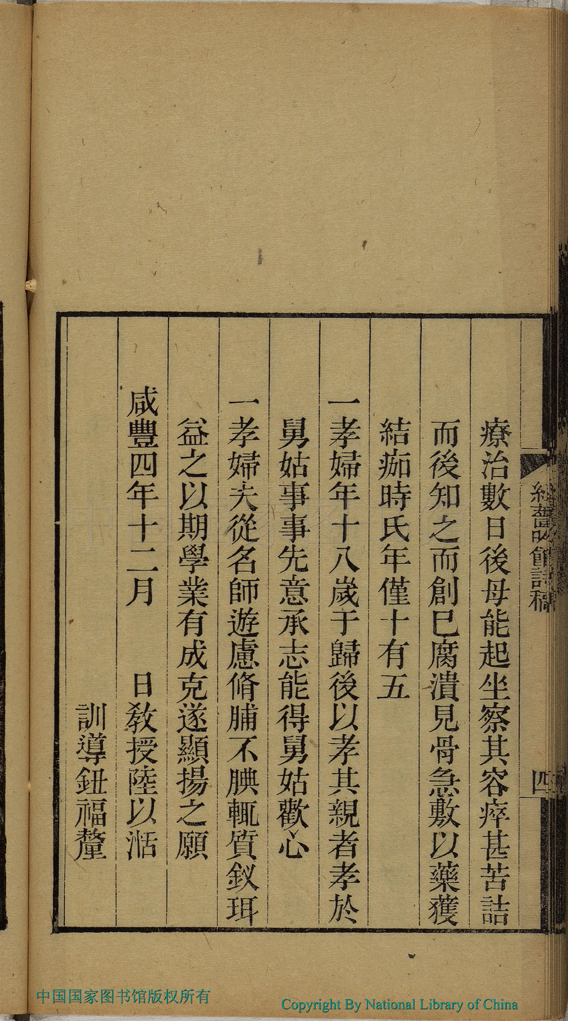 療治數日後母能起坐察其容瘁甚苦詰
而後知之而創已腐潰見骨急敷以藥獲
結痂時氏年僅十有五
一孝婦年十八歲于歸後以孝其親者孝於
舅姑事事先意承志能得舅姑歡心
一孝婦夫從名師遊慮脩脯不腆輒質釵珥
益之以期學業有成克遂顯揚之願
咸豐四年十二月　　日教授陸以湉
訓導鈕福釐
館詩稿
四
中国国家图书馆版权所有
Copyright By National Library of China